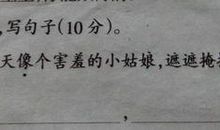 ，写句子(10分)。
天像个害羞的小姑娘，遮遮掩
，